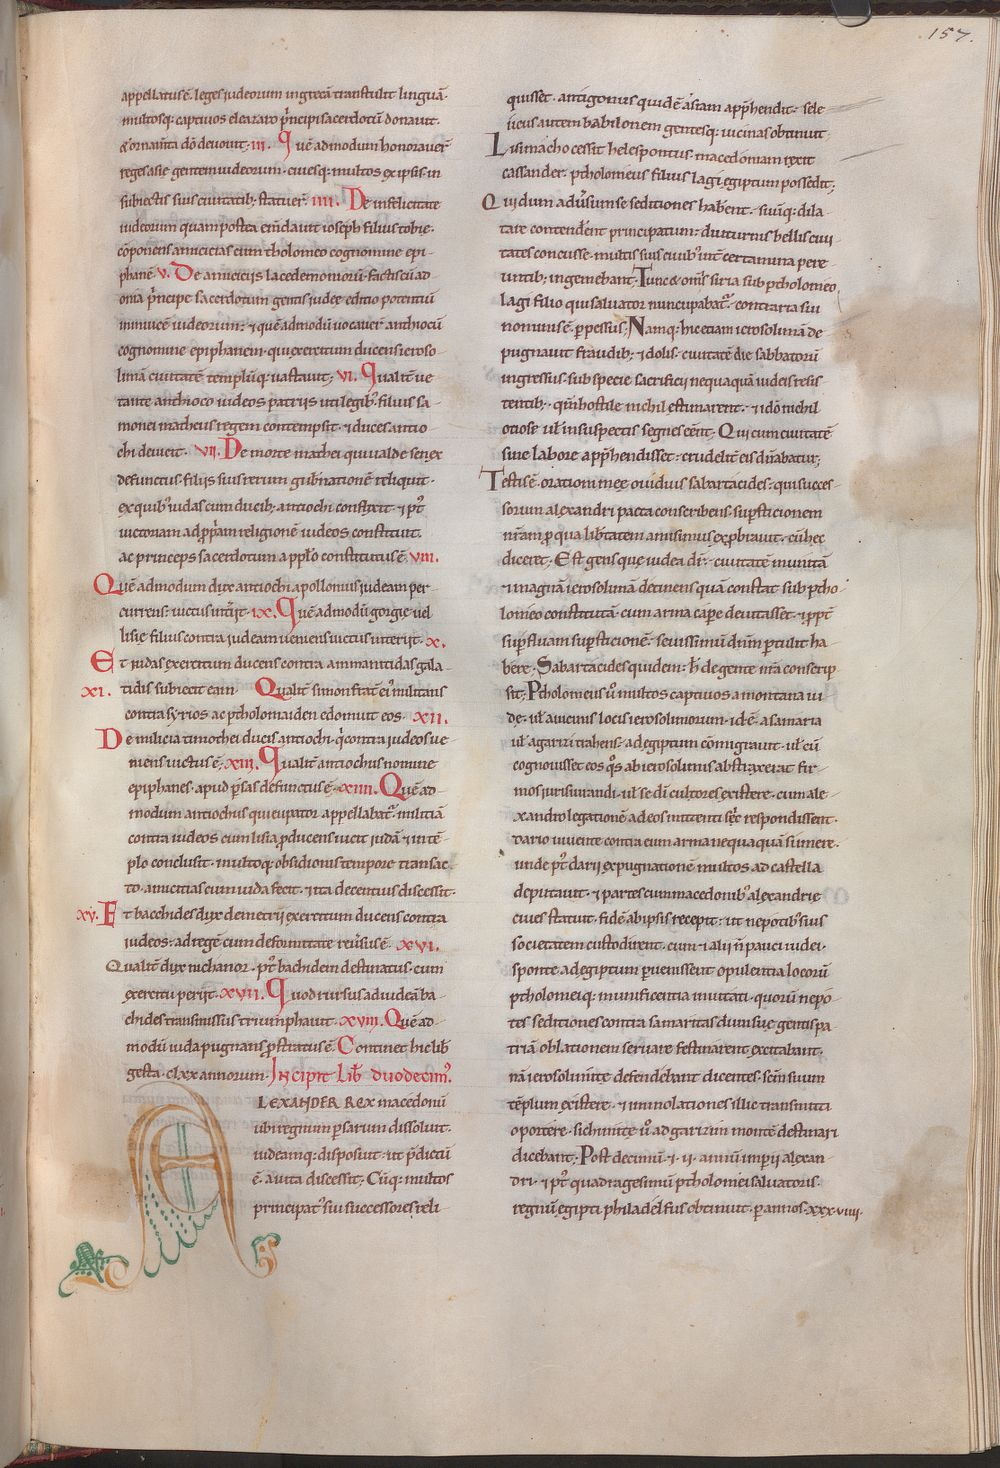 157.
appellatus ē. leges iudeorum in grecā transtulit linguā.
multosq; captivos eleazaro p̄ncipi sacerdotū donauit.
& ornam̄ta dō deuouit. III. Quēadmodum honorauer̄
reges asie gentem iudeorum. eiusq; multos ex ipsis in
subiectis suis ciuitatib; statuer̄. IIII. De infelicitate
iudeorum quam postea em̄dauit ioseph filius tobie.
cōponens amicicias cum tholomeo cognomine epi-
phanē. V. De amiciciis lacedemoniorū. factis cū ad
oniā p̄ncipe sacerdotum gentis iudee. editio potentiū
inimicē iudeorum: & quēadmodū uocauer̄ anthiocū
cognomine epiphanem. qui exercitum ducens ieroso-
limā ciuitatē templūq; uastauit; VI. Qualit̄ ue
tante anthioco iudeos patriis uti legib;. filius sa-
monei matheus regem contempsit. & duces antio
chi deuicit. VII. De morte mathei qui ualde senex
defunctus. filiis suis rerum gub̄nationē reliquit.
ex quib; iudas cum ducib; antiochi conflixit. & p̄t
uictoriam ad p̄p̄iam religionē iudeos constituit.
ac princeps sacerdotum a pp̄lo constitutus ē. VIII.
Quēadmodum dux antiochi apollonius iudeam per
currens. uictus int̄iit. IX. Quēadmodū gorgie uel
lisie filius contra iudeam ueniens uictus interiit. X.
Et iudas exercitum ducens contra ammanitidas gala-
XI. tidis subiecit eam. Qualit̄ simon frat̄ ei' militans
contra syrios ac ptholomaiden edomuit eos. XII.
De milicia timothei ducis antiochi. q̄ contra iudeos ue
niens uictus ē; XIII. Qualit̄ antiochus nomine
epiphanes. apud p̄sas defunctus ē. XIIII. Quēad-
modum antiochus qui eupator appellabat̄. militiā
contra iudeos cum lisia p̄ducens uicit iudā. & in tē-
plo conclusit. multoq; obsidionis tempore transac-
to. amicitias cum iuda fecit. & ita decentius discessit.
XV. Et bacchides dux demetrii exercitum ducens contra
iudeos. ad regē cum deformitate reu̓sus ē. XVI.
Qualit̄ dux nichanor. p̄t bachidem destinatus. cum
exercitu periit. XVII. Quod rursus ad iudeā ba-
chides transmissus triumphauit. XVIII. Quēad
modū iuda pugnans p̄stratus ē. Continet hic lib̄
gesta. clxx annorum. Incipit Lib̄ duodecim'.
ALEXANDER REX macedonū
ubi regnum persarum dissoluit.
iudeamq; disposuit. ut p̄dictū
ē. a uita discessit; Cūq; multos
principat' sui successores reli-
quisset. antigonus quidē asiam app̄hendit. sele
ucus autem babilonem gentesq; uicinas obtinuit.
Lusimacho cessit helespontus. macedoniam rexit
cassander. ptholomeus filius lagi egiptum possedit;
Qui dum adu̓sum se seditiones hab̄ent. suūq; dila-
tare contendent principatum: diuturnis bellis ciui
tates concusse. multis suis ciuib; int̄ certamina pere-
untib; ingemebant. Tunc & om̄s siria sub ptholomeo
lagi filio qui saluator nuncupabat̄. contraria sui
nominis ē p̄pessus. Namq; hic etiam ierosolimā de
pugnauit fraudib; & dolis. ciuitatē die sabbatorū
ingressus. sub specie sacrificii nequaquā iudeis resis-
tentib;. quin̄ hostile nichil estimarent. & idō nichil
otiose ul̄ insuspectis segnes eēnt. Qui cum ciuitatē
sine labore app̄hendisset: crudelit̄ eis dn̄abatur;
Testis ē. oratio mee ouidius sabartacides: qui succes-
sorum alexandri pacta conscribens. sup̄sticionem
nr̄am p̄ qua lib̄tatem amisimus exp̄brauit. cū hec
diceret. Est gens que iudea dr̄. ciuitatē munitā
& magnā ierosolimā detinens quā constat sub ptho-
lomeo constitutā. cum arma cap̄e deuitasset. & pp̄t
sup̄fluam sup̄sticionē. seuissimū dn̄m p̄tulit ha-
bere. Sabartacides quidem. h̄ de gente nr̄a conscrip-
sit. Ptholomeus u̓ multos captiuos a montana iu
de. ul̄ a uicinis locis ierosolimorum. id ē. a samaria
ul̄ a garizi trahens. ad egiptum cōmigrauit. ul̄ cū
cognouisset eos q̓s ab ierosolimis abstraxerat fir-
mos iurisiurandi. ul̄ se dī cultores existere. cum ale-
xandro legationē ad eos mittenti sc̄r respondissent.
dario uiuente contra eum arma nequaquā sumere.
unde p̄t darii expugnationē multos ad castella
deputauit. & partes cum macedonib; alexandrie
ciues statuit. fidē ab ipsis recepit: ut nepotib; suis
societatem custodirent. cum & alii n̄ pauci iudei.
sponte ad egiptum p̄uenissent opulentia locorū
ptholomeiq; munificentia inuitati. quorū nepo-
tes seditiones contra samaritas dum sue gentis pa-
triā oblationem seruare festinarent excitabant.
nā ierosolimite defendebant dicentes. sc̄m suum
tēplum existere. & immolationes illic transmitti
oportere. sichimite u̓ ad garizim montē destinari
dicebant; Post decimū. & II. annū imp̄ii alexan-
dri. & p̄t quadragesimū ptholomei saluatoris.
regnū egipti philadelfus obtinuit. p̄ annos. xxxviiii.